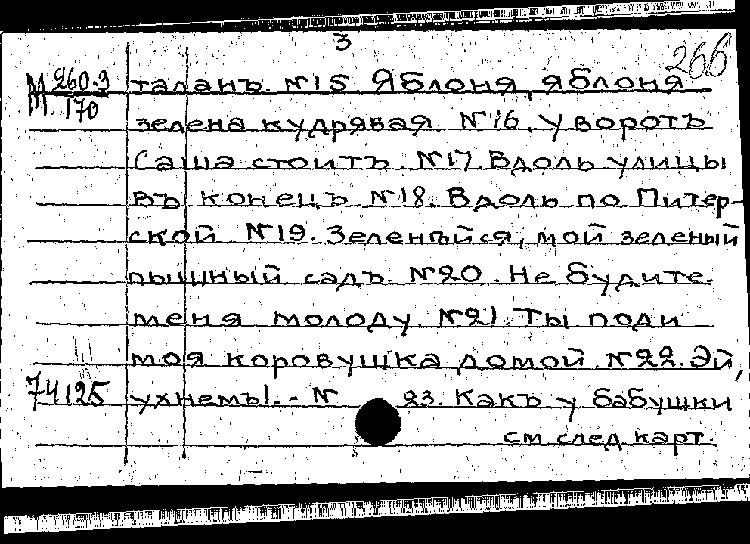 3
266
М 260.3 таланъ. №15 Яблоня, яблоня
М. 170
зелена кудрявая №16. У воротъ
Саша стоитъ. №17. Вдоль улицы
въ конецъ №18. Вдоль по Питер-
ской №19. Зеленѣйся, мой зеленый
пышный садъ. №20. Не будите
меня молоду. №21. Ты поди
моя коровушка домой. №22. Эй,
74125 ухнемъ!.- № 23. Какъ у бабушки
см след. карт.